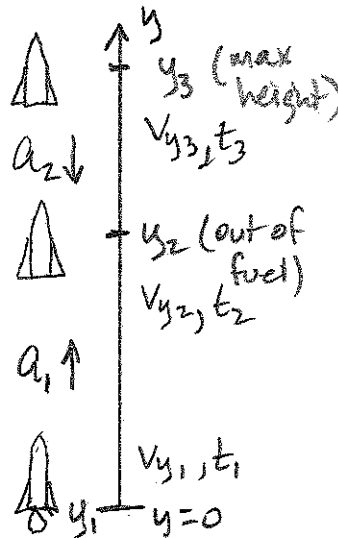 y
y₃ (max
height)
v_y₃, t₃
a₂ ↓
y₂ (out of
fuel)
v_y₂, t₂
a₁ ↑
v_y₁, t₁
y₁ y=0